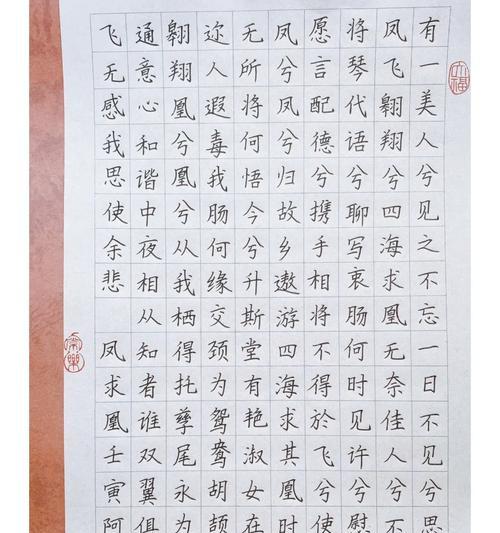 有一美人兮见之不忘一日不见兮思
凤飞翱翔兮四海求凰无奈佳人兮不
将琴代语兮聊写衷肠何时见许兮慰
愿言配德兮携手相将不得於飞兮使
凤兮凤兮归故乡遨游四海求其凰时
无所将何悟今兮升斯堂有艳淑女在
迩人遐毒我肠何缘交颈为鸳鸯胡颉
翱翔凰兮凰兮从我栖得托孳尾永为
通意心和谐中夜相从知者谁双翼俱
飞无感我思使余悲 凤求凰壬寅阿